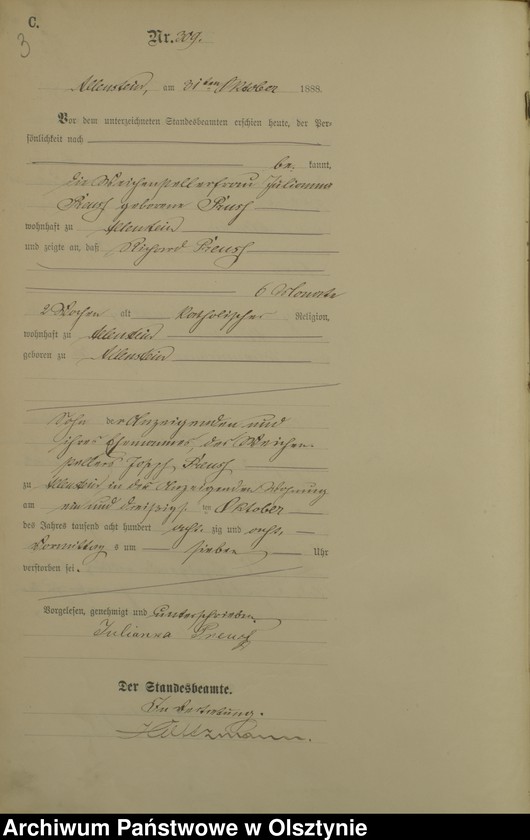 C.
3
Nr. 309.
Allenstein, am 31ten Oktober 1888.
Vor dem unterzeichneten Standesbeamten erschien heute, der Per-
sönlichkeit nach
be kannt,
die Weichenstellerfrau Julianna
Preuß geborene
wohnhaft zu Allenstein
und zeigte an, daß Richard Preuß
6 Monate
2 Wochen alt katholischer Religion,
wohnhaft zu Allenstein
geboren zu Allenstein
Sohn der Anzeigenden und
ihres Ehemannes, des Weichen-
stellers Joseph Preuß
zu Allenstein in der Anzeigenden Wohnung
am ein und dreißigsten Oktober
des Jahres tausend acht hundert acht zig und acht
Vormittag s um sieben Uhr
verstorben sei.
Vorgelesen, genehmigt und unterschrieben
Julianna Preuß
Der Standesbeamte.
In Vertretung.
Holtzmann.
Archiwum Państwowe w Olsztynie